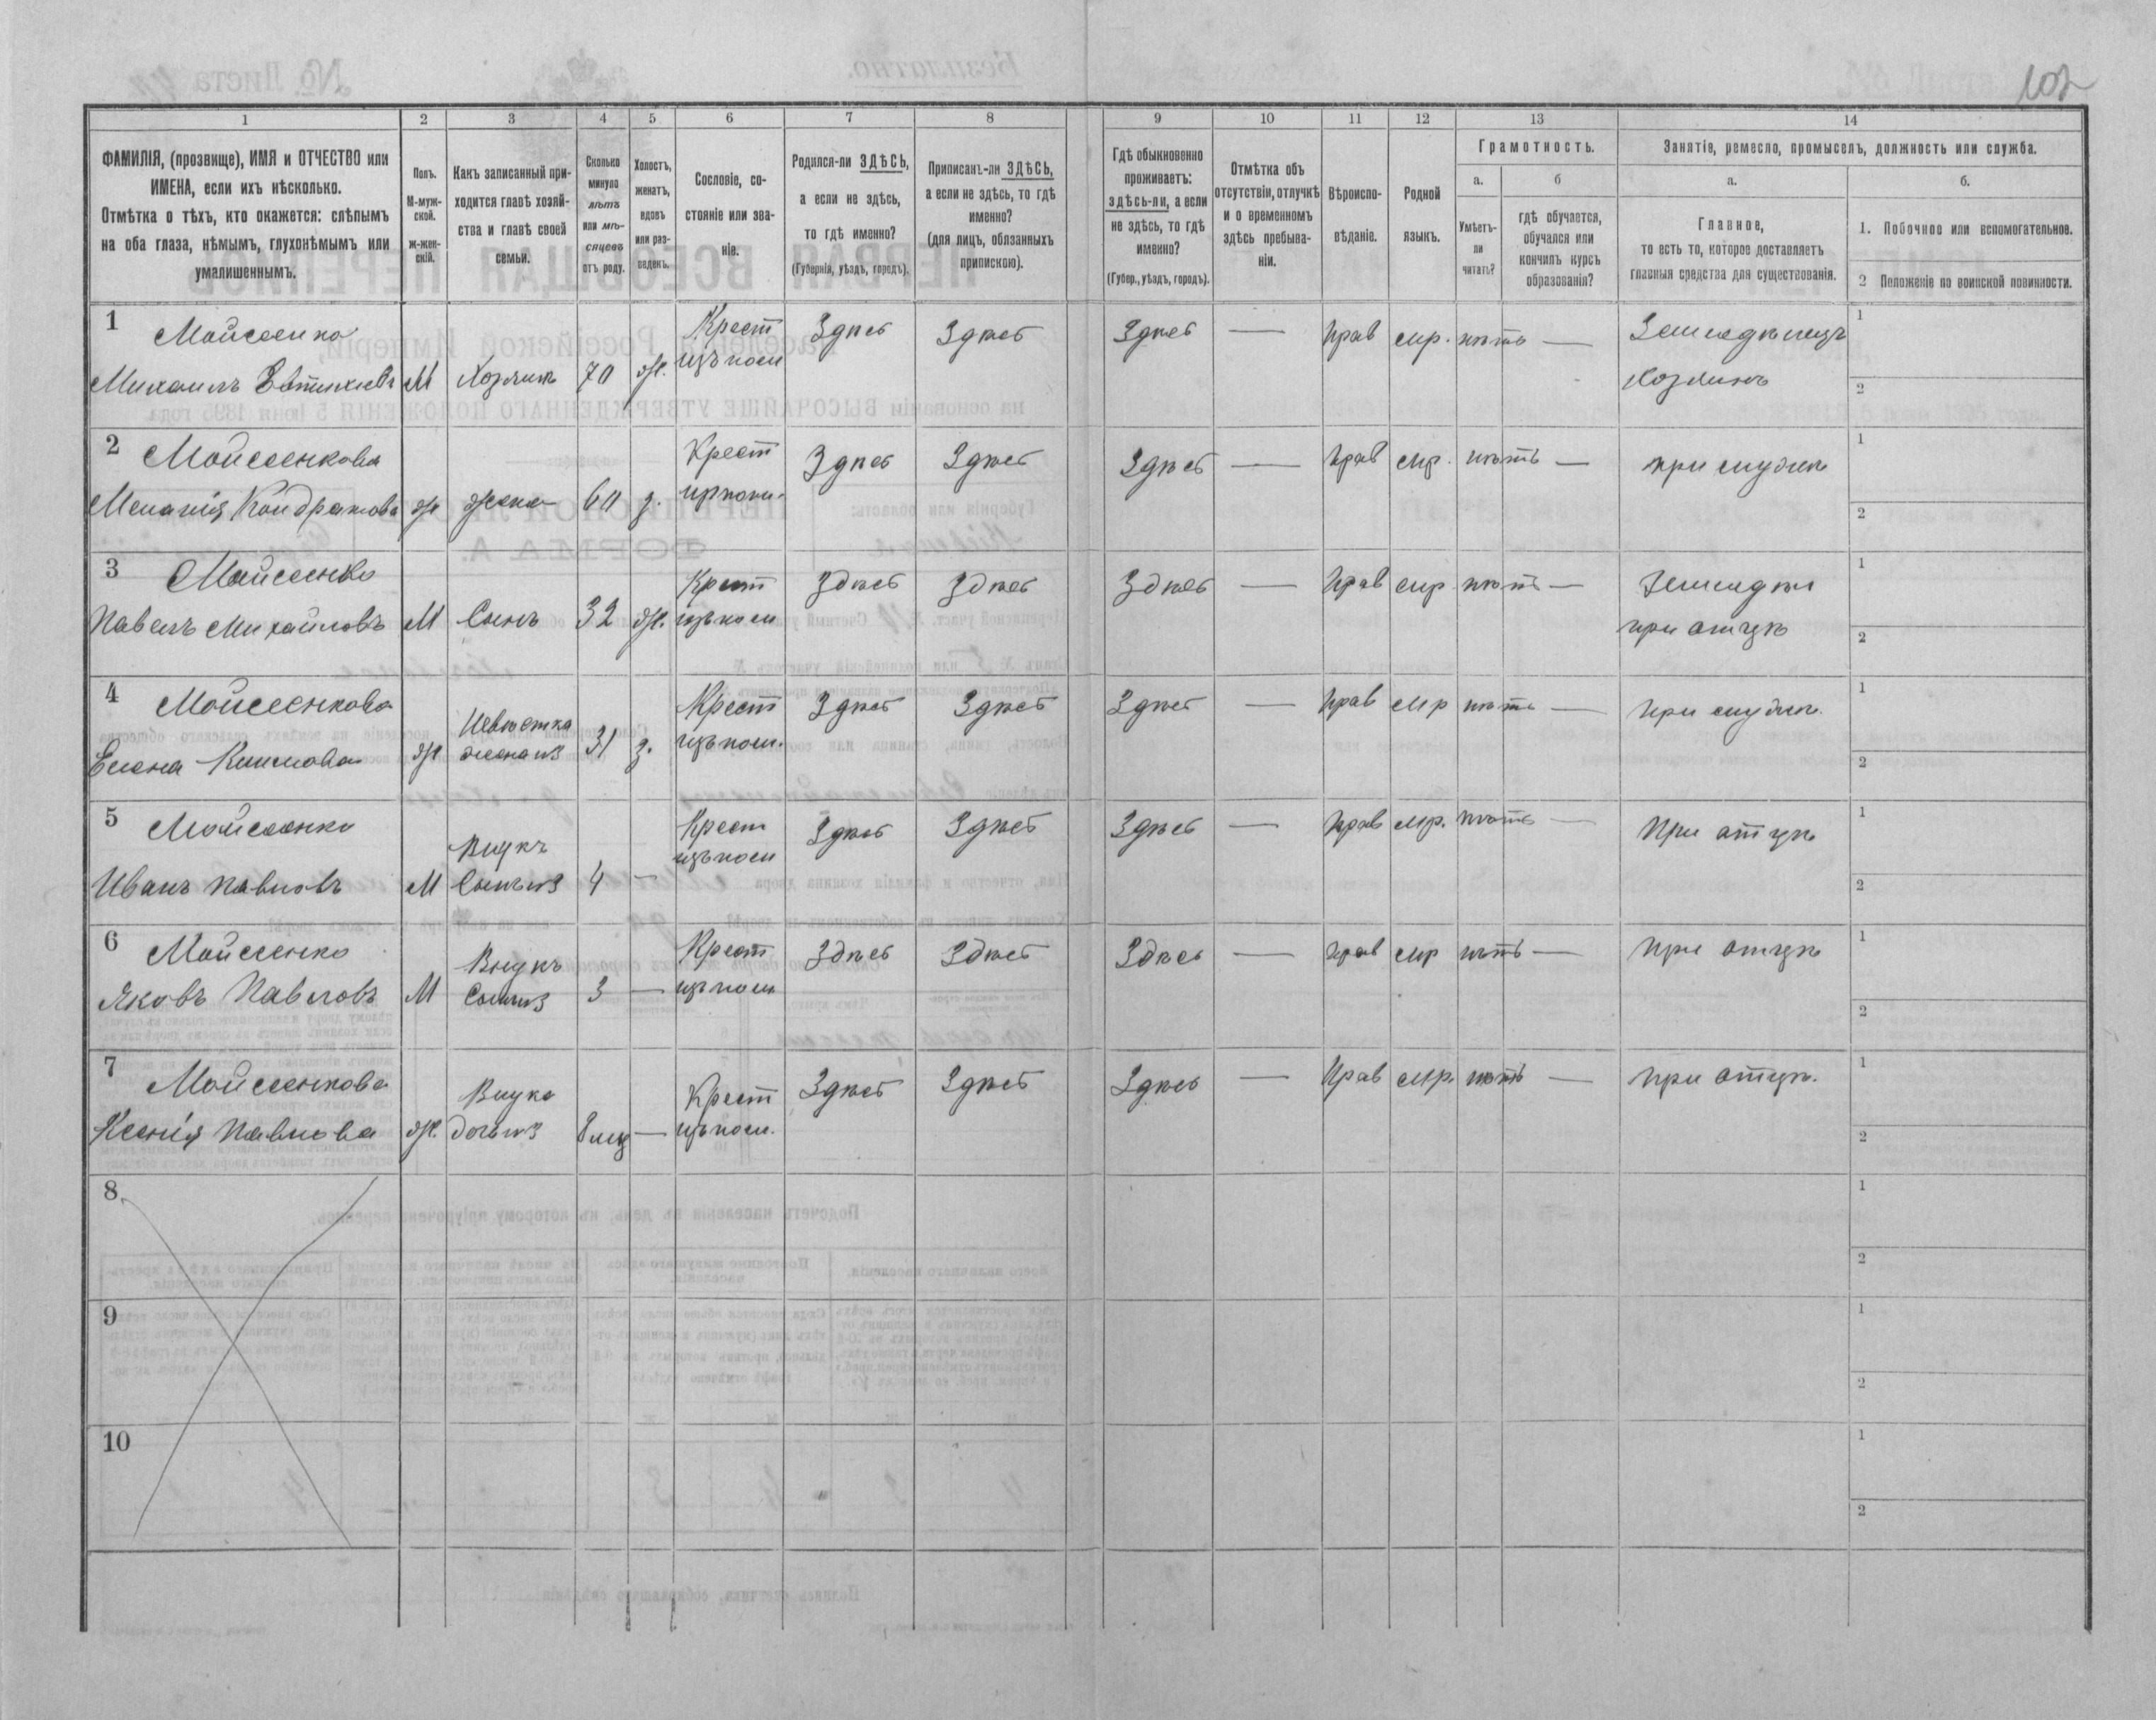 102
1 2 3 4 5 6 7 8 9 10 11 12 13 14
ФАМИЛІЯ, (прозвище), ИМЯ и ОТЧЕСТВО или
ИМЕНА, если ихъ нѣсколько.
Отмѣтка о тѣхъ, кто окажется: слѣпымъ
на оба глаза, нѣмымъ, глухонѣмымъ или
умалишеннымъ.
Полъ.
М-муж-
ской.
Ж-жен-
скій.
Какъ записанный при-
ходится главѣ хозяй-
ства и главѣ своей
семьи.
Сколько
минуло
лѣтъ
или мѣ-
сяцевъ
отъ роду.
Холостъ,
женатъ,
вдовъ
или раз-
веденъ.
Сословіе, со-
стояніе или зва-
ніе.
Родился-ли ЗДѢСЬ,
а если не здѣсь,
то гдѣ именно?
(Губернія, уѣздъ, городъ).
Приписанъ-ли ЗДѢСЬ,
а если не здѣсь, то гдѣ
именно?
(для лицъ, обязанныхъ
припискою).
Гдѣ обыкновенно
проживаетъ:
здѣсь-ли, а если
не здѣсь, то гдѣ
именно?
(Губер., уѣздъ, городъ).
Отмѣтка объ
отсутствіи, отлучкѣ
и о временномъ
здѣсь пребыва-
ніи.
Вѣроиспо-
вѣданіе.
Родной
языкъ.
Грамотность.
а.
Умѣетъ-
ли
читать?
б
гдѣ обучается,
обучался или
кончилъ курсъ
образованія?
Занятіе, ремесло, промыселъ, должность или служба.
а.
Главное,
то есть то, которое доставляетъ
главныя средства для существованія.
б.
1. Побочное или вспомогательное.
2 Положеніе по воинской повинности.
1 Мойсеенко Крест Здѣсь Здѣсь Здѣсь — Прав мр. нѣтъ — Земледѣлецъ 1
Михаилъ Евтихіевъ М Хозяинъ 70 ж. Хозяинъ 2
2 Мойсеенкова Крест Здѣсь Здѣсь Здѣсь — Прав мр. нѣтъ — при мужѣ 1
Меланія Кондратова ж жена 60 з. 2
3 Мойсеенко Крест Здѣсь Здѣсь Здѣсь — Прав мр нѣтъ — Земледѣл 1
Павелъ Михайловъ М Сынъ 32 ж. при отцѣ 2
4 Мойсеенкова Невѣстка Крест Здѣсь Здѣсь Здѣсь — Прав мр нѣтъ — при мужѣ. 1
Елена Климова ж жена №3 31 з. 2
5 Мойсеенко Внукъ Крест Здѣсь Здѣсь Здѣсь — Прав мр. нѣтъ — При отцѣ 1
Иванъ Павловъ М Сынъ №3 4 — 2
6 Мойсеенко Внукъ Крест Здѣсь Здѣсь Здѣсь — Прав мр нѣтъ — при отцѣ 1
Яковъ Павловъ М Сынъ №3 3 — 2
7 Мойсеенкова Внука Крест Здѣсь Здѣсь Здѣсь — Прав мр. нѣтъ — при отцѣ. 1
Ксенія Павлова ж. дочь №3 8 мц — 2
8 1
2
9 1
2
10 1
2